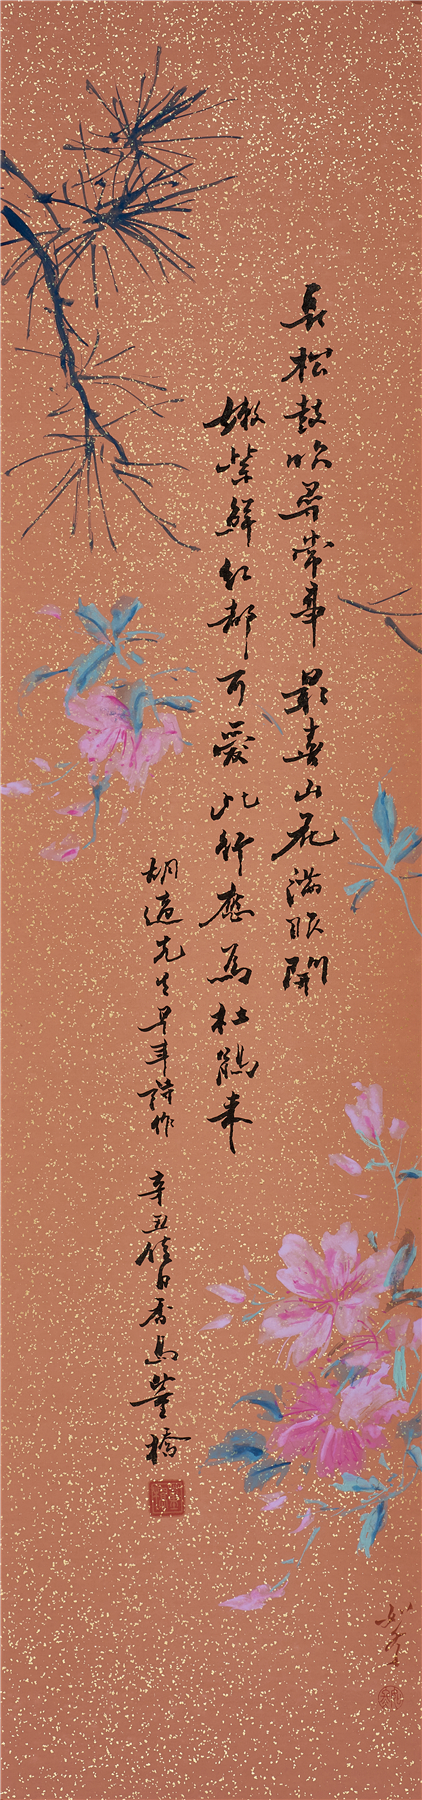 長松鼓吹尋常事 最喜山花滿眼開
嫩紫鮮紅都可愛 此行應為杜鵑來
胡適先生早年詩作 辛丑佳日香島董橋